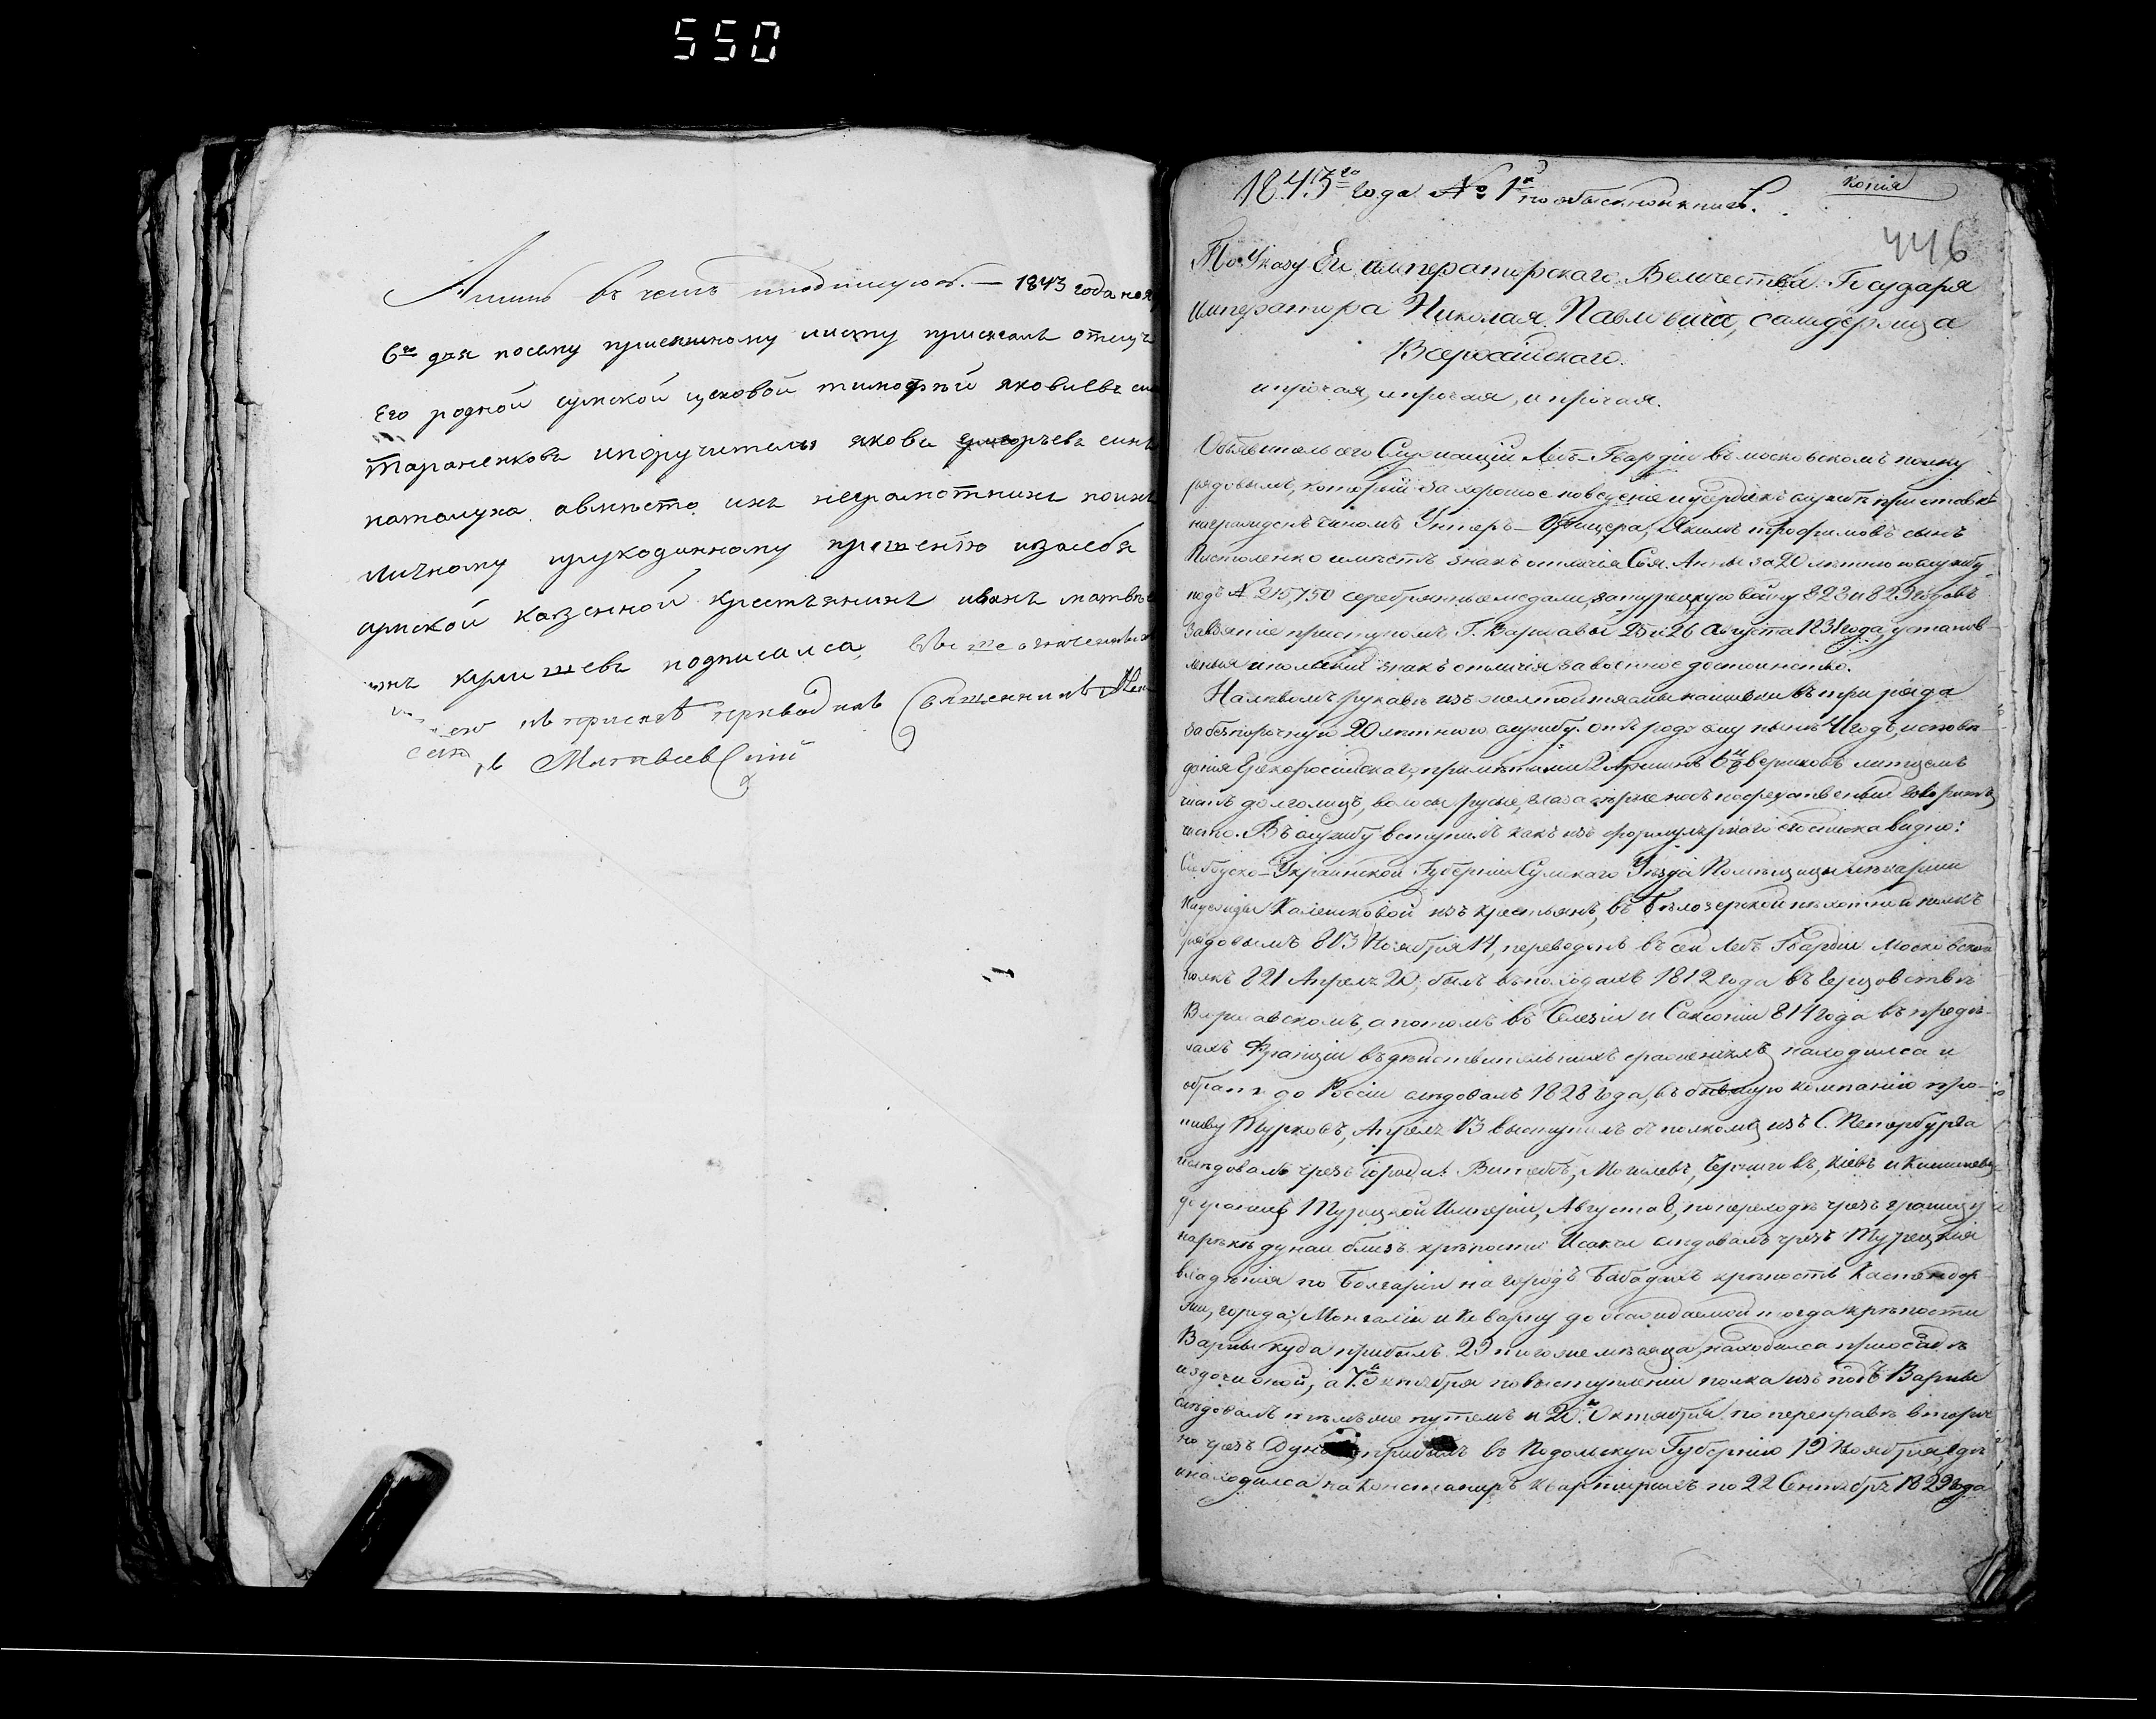 550
Аминь въ чемъ и подпишуюсь. — 1843 года ноя
6го дня посему присяжному листу присягали отецъ
Его родной сумской цеховой тимофѣй яковлевъ сы
тараненковъ ипоручители яковъ сынъ
авмѣсто ихъ неграмотныхъ поихъ
личному ирукоданному прошенію изасебя
сумской казенной крестьянинъ иванъ матвѣе
подписался, вышеозначенныхъ
къ присягѣ приводилъ Священникъ
Матвѣевскій
копія
1843го года № 1й по обыскной книгѣ.
446
По Указу Его императорскаго Величества Государя
императора Николая Павловича, самодержца
Всероссійскаго.
ипрочая, ипрочая, ипрочая.
Объявитель сего Служащій Лебъ-Гвардіи въ московскомъ полку
рядовымъ, который за хорошое поведеніе иусердіе къ службѣ приотставкѣ
награжденъ чиномъ Унтеръ-Офицера, Якимъ трофимовъ сынъ
имѣетъ знакъ отличія Свя. Анны за 20 лѣтнюю службу,
подъ № 215,750 серебрянные медали, затурецкую войну 828 и 829 годовъ
завзятіе приступомъ Г. Варшавы 25 и 26 Августа 1831 года установ
ленныя ипольскій знакъ отличія завоенное достоинство.
Налѣвомъ рукавѣ изъ желтой тясмы нашивки въ три ряда
забезпорочную 20 лѣтнюю службу. отъ роду ему нынѣ годъ, исповѣ
данія Грекороссійскаго, примѣтами 2 Аршинъ 6 вершковъ лицемъ
чистъ долголицъ, волосы русые, глаза носъ посредственный говоритъ
чисто. Въ службу вступилъ какъ изъ формулярнаго его списка видно:
Слободско-Украинской Губерніи Сумскаго Уѣзда Помѣщицы лѣкарши
Надежды изъ крестьянъ, въ Бѣлозерской пѣхотной полкъ
рядовымъ 813 Ноября 14, переведенъ въ сей Лебъ Гвардіи Московской
полкъ 821 Апреля 20, былъ въ походахъ 1812 года въ Герцовствѣ
Варшавскомъ, апотомъ въ Силезіи и Саксоніи 814 года въ предѣ-
лахъ Франціи въ дѣйствительныхъ сраженіяхъ находился и
обратн до Россіи слѣдовалъ 1828 года, въ бывшую компанію про-
тиву Турковъ, Апреля 13 выступилъ съ полкомъ изъ С. Петербурга
ислѣдовалъ чрезъ города: Витебъ, Могилевъ, Черниговъ, Кіевъ и Кишиневъ
до границъ Турецкой Имперіи, Августа 8, по переходѣ чрезъ границу
нарѣкѣ дунаи близъ крѣпости Исакчи слѣдовалъ чрезъ Турецкія
владѣнія по Болгаріи на городъ Бабадахъ крѣпость Кистенджи
города, Мангалію и Коварну до осаждаемой тогда крѣпости
Варны куда прибылъ 29 тогоже мѣсяца, находился приосадѣ
издачи оной, а 7го октября повыступленіи полка изъ подъ Варны
слѣдовалъ тѣмъже путемъ и 20го Октября по переправѣ вторич
но чрезъ прибылъ въ Подольскую Губернію 19 Ноября, гдѣ
инаходился на Контониръ Квартирахъ по 22 Сентября 1829 года